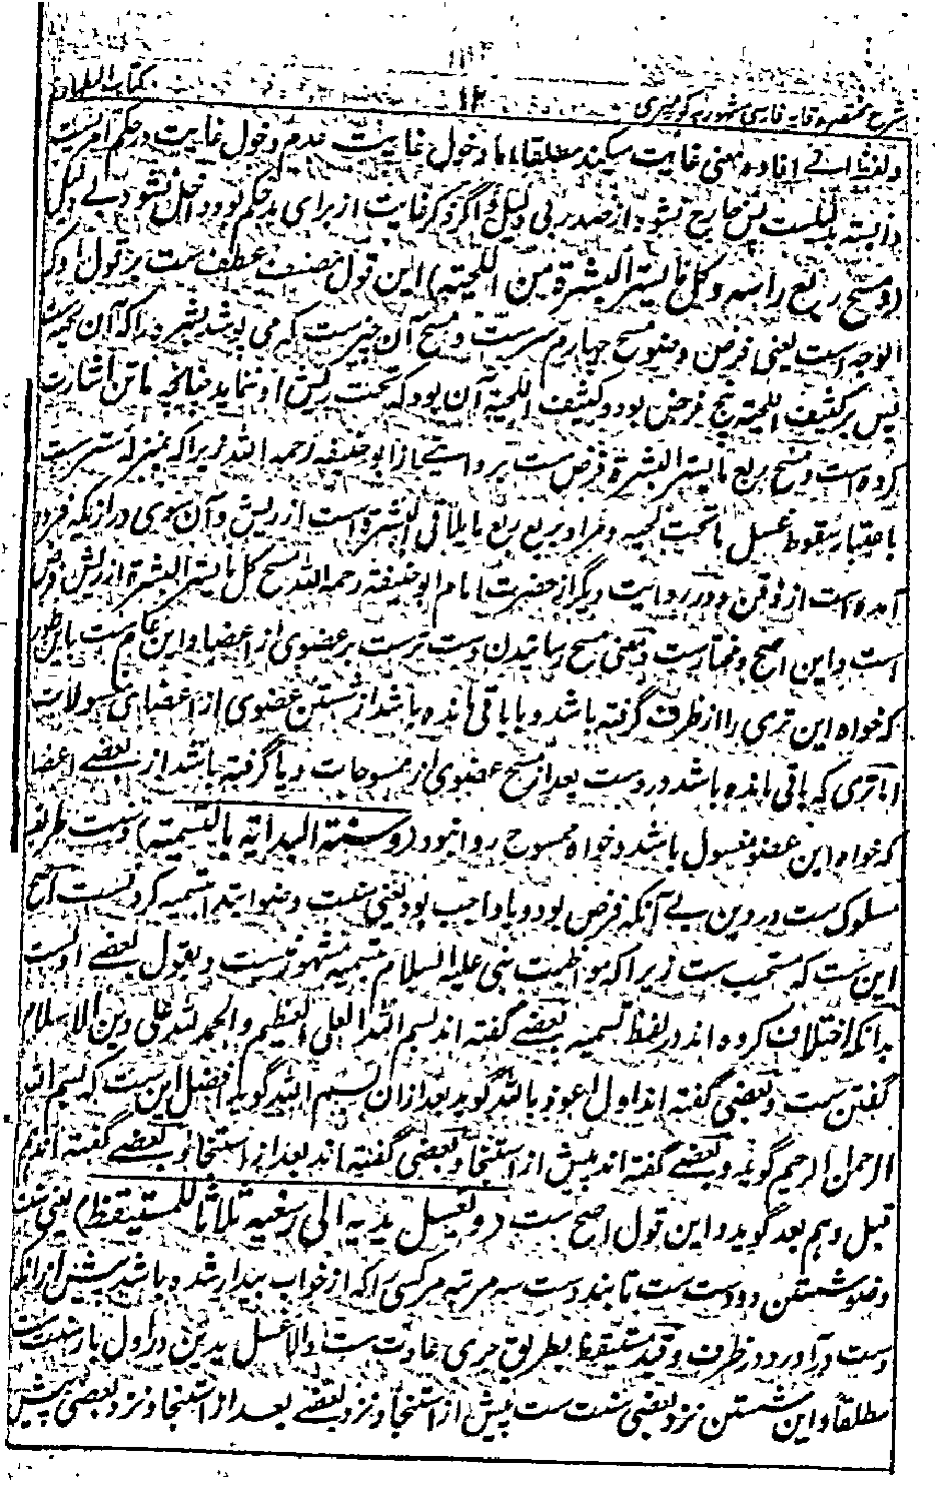 کتاب الطهارة ۱۲ شرح مختصر وقایه فارسی مشهور به کوهیری
ولفظ الی افاده معنی غایت میکند مطلقا اما دخول غایت عدم دخول غایت در حکم امریست
دانسته بدلیلست پس خارج نشود از صدر بی دلیل و اگر ذکر غایت از برای مد حکم بود داخل نشود بے دلیل
(ومسح ربع راسه وکل ما یستر البشرة من اللحیة) این قول مصنف عطف ست بر قول او که
الوجه است یعنی فرض وضو مسح چهارم سرست و مسح آن چیزست که می پوشد بشره را که آن لحیه ست
پس بر کثیف اللحیة مسح فرض بود و کثیف اللحیة آن بود که تحت ریش او ننماید چنانچه ماتن اشارت
کرده است و مسح ربع ما یستر البشرة فرض ست بروایتے از ابو حنیفه رحمه الله زیرا که بمنزله سرست
باعتبار سقوط غسل ما تحت لحیه و مراد بربع ربع ما یلاقی البشرة است از ریش و آن موی درازیکه فرود
آمده است از ذقن و در روایت دیگر از حضرت امام ابو حنیفه رحمه الله مسح کل ما یستر البشرة از ریش فرض
است و این اصح و مختارست و معنی مسح رسانیدن دست ترست بر عضوی از اعضا و این عام ست باین طور
که خواه این تری را از ظرف گرفته باشد و یا باقی مانده باشد از شستن عضوی از اعضای مغسولات
اما تری که باقی مانده باشد در دست بعد از مسح عضوی از ممسوحات و یا گرفته باشد از بعضے اعضا
که خواه این عضو مغسول باشد و خواه ممسوح روا نبود (وسنته البدایة بالتسمیة) وسنت طریقه
مسلوک ست در دین بے آنکه فرض بود و یا واجب بود یعنی سنت وضو ابتدا بتسمیه کردنست اصح
این ست که مستحب ست زیرا که مواظبت نبی علیه السلام بتسمیه مشهور نیست و بقول بعضے
بدانکه اختلاف کرده اند در لفظ تسمیه بعضے گفته اند بسم الله العلی العظیم والحمد لله علی دین الاسلام
گفتن ست و بعضی گفته اند اول اعوذ بالله گوید بعد از ان بسم الله گوید افضل این ست که بسم الله
الرحمن الرحیم گوید و بعضے گفته اند پیش از استنجا و بعضی گفته اند بعد از استنجا و بعضے گفته اند هم
قبل و هم بعد گوید و این قول اصح ست (وغسل یدیه الی رسغیه ثلاثا للمستیقظ) یعنی سنت
وضو شستن دو دست ست تا بند دست سه مرتبه مر کسی را که از خواب بیدار شده باشد پیش از آنکه
دست درآورد در ظرف و قید مستیقظ بطریق جری عادت ست والا غسل یدین در اول بار سنت ست
مطلقا و این شستن نزد بعضی سنت ست پیش از استنجا و نزد بعضے بعد از استنجا و نزد بعضی پیش